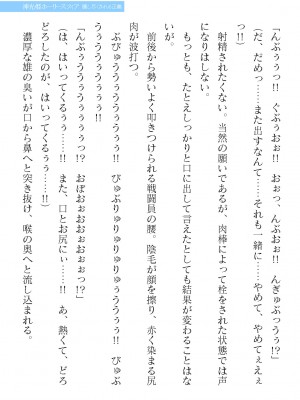 「んぶぅっ!! ぐぶぅおぉ!! おぉっ、んぶぉお!! んぎゅぶっうぅ!?」
(だ、だめっ……また出すなんて……それも一緒に……やめて、やめてぇえぇ
っ!!)
射精されたくない。当然の願いであるが、肉棒によって栓をされた状態では声
になりはしない。
もっとも、たとえしっかりと口に出して言えたとしても結果が変わることはな
いが。
前後から勢いよく叩きつけられる戦闘員の腰。陰毛が顔を擦り、赤く染まる尻
肉が波打つ。
ぶびゅううぅぅうぅぅぅっ!! びゅぶりゅりゅりゅりゅうぅうぅぅ!! びゅぶ
うぅぅうううぅぅ!!
「んぶぅううぅうううぅっ!? おぼぉおぉおぉおっ!?」
(は、はいってくるぅぅ……!! また、口とお尻にぃ……!! あ、熱くて、どろ
どろしたのが、はいってくるぅぅ……!!)
濃厚な雄の臭いが口から鼻へと突き抜け、喉の奥へと流し込まれる。